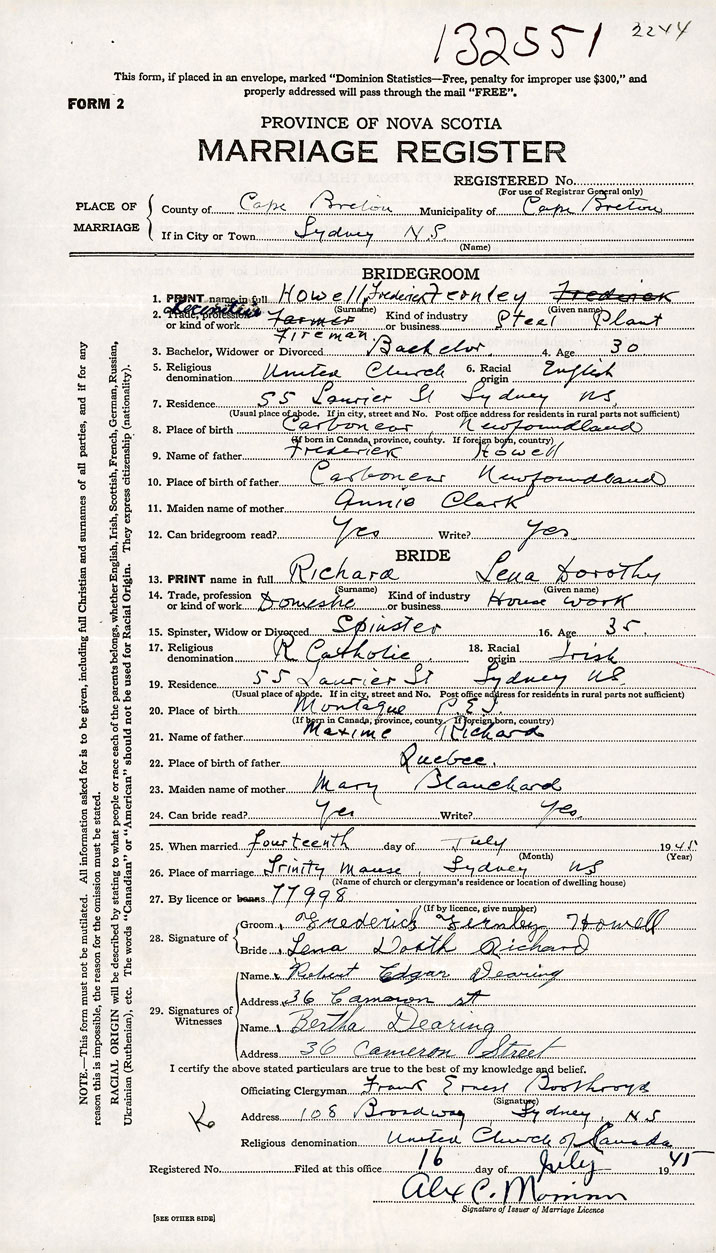 132551 2244
This form, if placed in an envelope, marked "Dominion Statistics—Free, penalty for improper use $300," and
properly addressed will pass through the mail "FREE".
FORM 2
PROVINCE OF NOVA SCOTIA
MARRIAGE REGISTER
REGISTERED No.
(For use of Registrar General only)
PLACE OF MARRIAGE
County of Cape Breton Municipality of Cape Breton
If in City or Town Sydney N.S.
(Name)
BRIDEGROOM
1. PRINT name in full Howell, Frederick Fernley Frederick
(Surname) (Given name)
2. Trade, profession or kind of work Farmer Fireman Kind of industry or business Steel Plant
3. Bachelor, Widower or Divorced Bachelor 4. Age 30
5. Religious denomination United Church 6. Racial origin English
7. Residence 55 Laurier St Sydney NS
(Usual place of abode. If in city, street and No. Post office address for residents in rural parts not sufficient)
8. Place of birth Carbonear, Newfoundland
(If born in Canada, province, county. If foreign born, country)
9. Name of father Frederick Howell
10. Place of birth of father Carbonear Newfoundland
11. Maiden name of mother Annie Clark
12. Can bridegroom read? Yes Write? Yes
BRIDE
13. PRINT name in full Richard Lena Dorothy
(Surname) (Given name)
14. Trade, profession or kind of work Domestic Kind of industry or business House work
15. Spinster, Widow or Divorced Spinster 16. Age 35.
17. Religious denomination R Catholic 18. Racial origin Irish
19. Residence 55 Laurier St Sydney NS
(Usual place of abode. If in city, street and No. Post office address for residents in rural parts not sufficient)
20. Place of birth Montague P.E.I
(If born in Canada, province, county. If foreign born, country)
21. Name of father Maxime Richard
22. Place of birth of father Quebec.
23. Maiden name of mother Mary Blanchard
24. Can bride read? Yes Write? Yes.
25. When married fourteenth day of July 1945
(Month) (Year)
26. Place of marriage Trinity Manse, Sydney NS
(Name of church or clergyman's residence or location of dwelling house)
27. By licence or banns 77998
(If by licence, give number)
28. Signature of
Groom Frederick Fernley Howell
Bride Lena Doath Richard
29. Signatures of Witnesses
Name Robert Edgar Dearing
Address 36 Cameron st
Name Bertha Dearing
Address 36 Cameron Street
I certify the above stated particulars are true to the best of my knowledge and belief.
Officiating Clergyman Frank Ernest Boothroyd
(Signature)
Address 108 Broadway Sydney, N.S
Religious denomination United Church of Canada
Registered No. Filed at this office 16 day of July 1945
Signature of Issuer of Marriage Licence
[SEE OTHER SIDE]
NOTE.—This form must not be mutilated. All information asked for is to be given, including full Christian and surnames of all parties, and if for any
reason this is impossible, the reason for the omission must be stated.
RACIAL ORIGIN will be described by stating to what people or race each of the parents belongs, whether English, Irish, Scottish, French, German, Russian,
Ukrainian (Ruthenian), etc. The words "Canadian" or "American" should not be used for Racial Origin. They express citizenship (nationality).